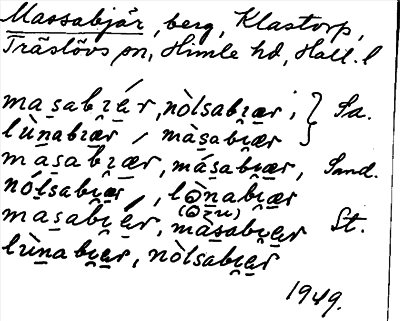 Massabjär, berg, Klastorp,
Träslövs sn, Himle hd, Hall. l
masabɪ̯ǽr, nòlsabɪ̯ær; } Sa.
lùnabɪ̯ær / màsabɪ̯ær
màsabɪ̯ær, másabɪ̯ær, Sand.
nólsabɪ̯ær, lò̤nabɪ̯ær
masabɪ̯ǽr, màsabɪ̯ær St.
lùnabɪ̯ær, nòlsabɪ̯ær
1949.